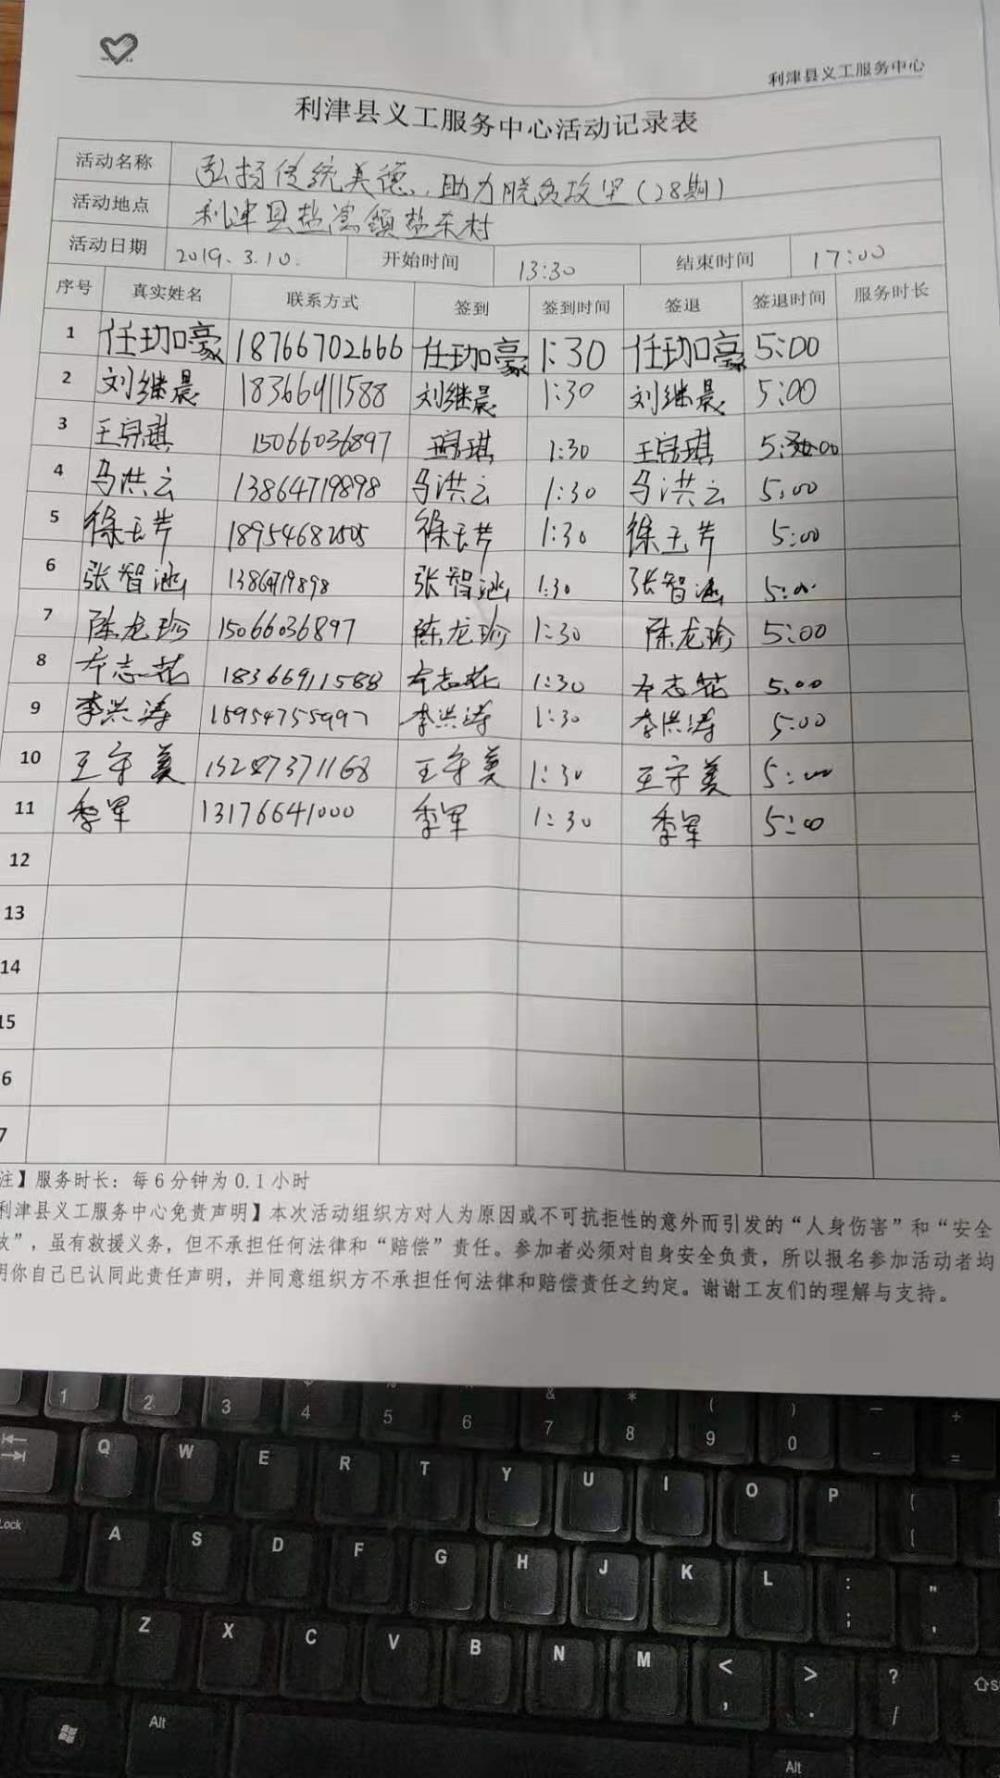 利津县义工服务中心
利津县义工服务中心活动记录表
活动名称 弘扬传统美德，助力脱贫攻坚（28期）
活动地点 利津县盐窝镇盐东村
活动日期 2019.3.10. 开始时间 13:30 结束时间 17:00
序号 真实姓名 联系方式 签到 签到时间 签退 签退时间 服务时长
1 任珈豪 18766702666 任珈豪 1:30 任珈豪 5:00
2 刘继晨 18366911588 刘继晨 1:30 刘继晨 5:00
3 15066036897 1:30 5:00
4 马洪云 13864719898 马洪云 1:30 马洪云 5:00
5 徐玉芹 18954682505 徐玉芹 1:30 徐玉芹 5:00
6 张智涵 1386719898 张智涵 1:30 张智涵 5:00
7 陈龙珍 15066036897 陈龙珍 1:30 陈龙珍 5:00
8 18366911588 1:30 5:00
9 李洪涛 李洪涛 1:30 李洪涛 5:00
10 王守美 王守美 1:30 王守美 5:00
11 13176641000 1:30 5:00
12
13
14
15
6
7
注】服务时长：每6分钟为0.1小时
利津县义工服务中心免责声明】本次活动组织方对人为原因或不可抗拒性的意外而引发的“人身伤害”和“安全
故”，虽有救援义务，但不承担任何法律和“赔偿”责任。参加者必须对自身安全负责，所以报名参加活动者均
明你自己已认同此责任声明，并同意组织方不承担任何法律和赔偿责任之约定。谢谢工友们的理解与支持。
1 2 3 4 5 6 & 7 * 8 ( 9 ) 0 _ - + =
Q W E R T Y U I O P { [
Lock A S D F G H J K L : ; " '
Z X C V B N M < , > . ? /
Alt Alt